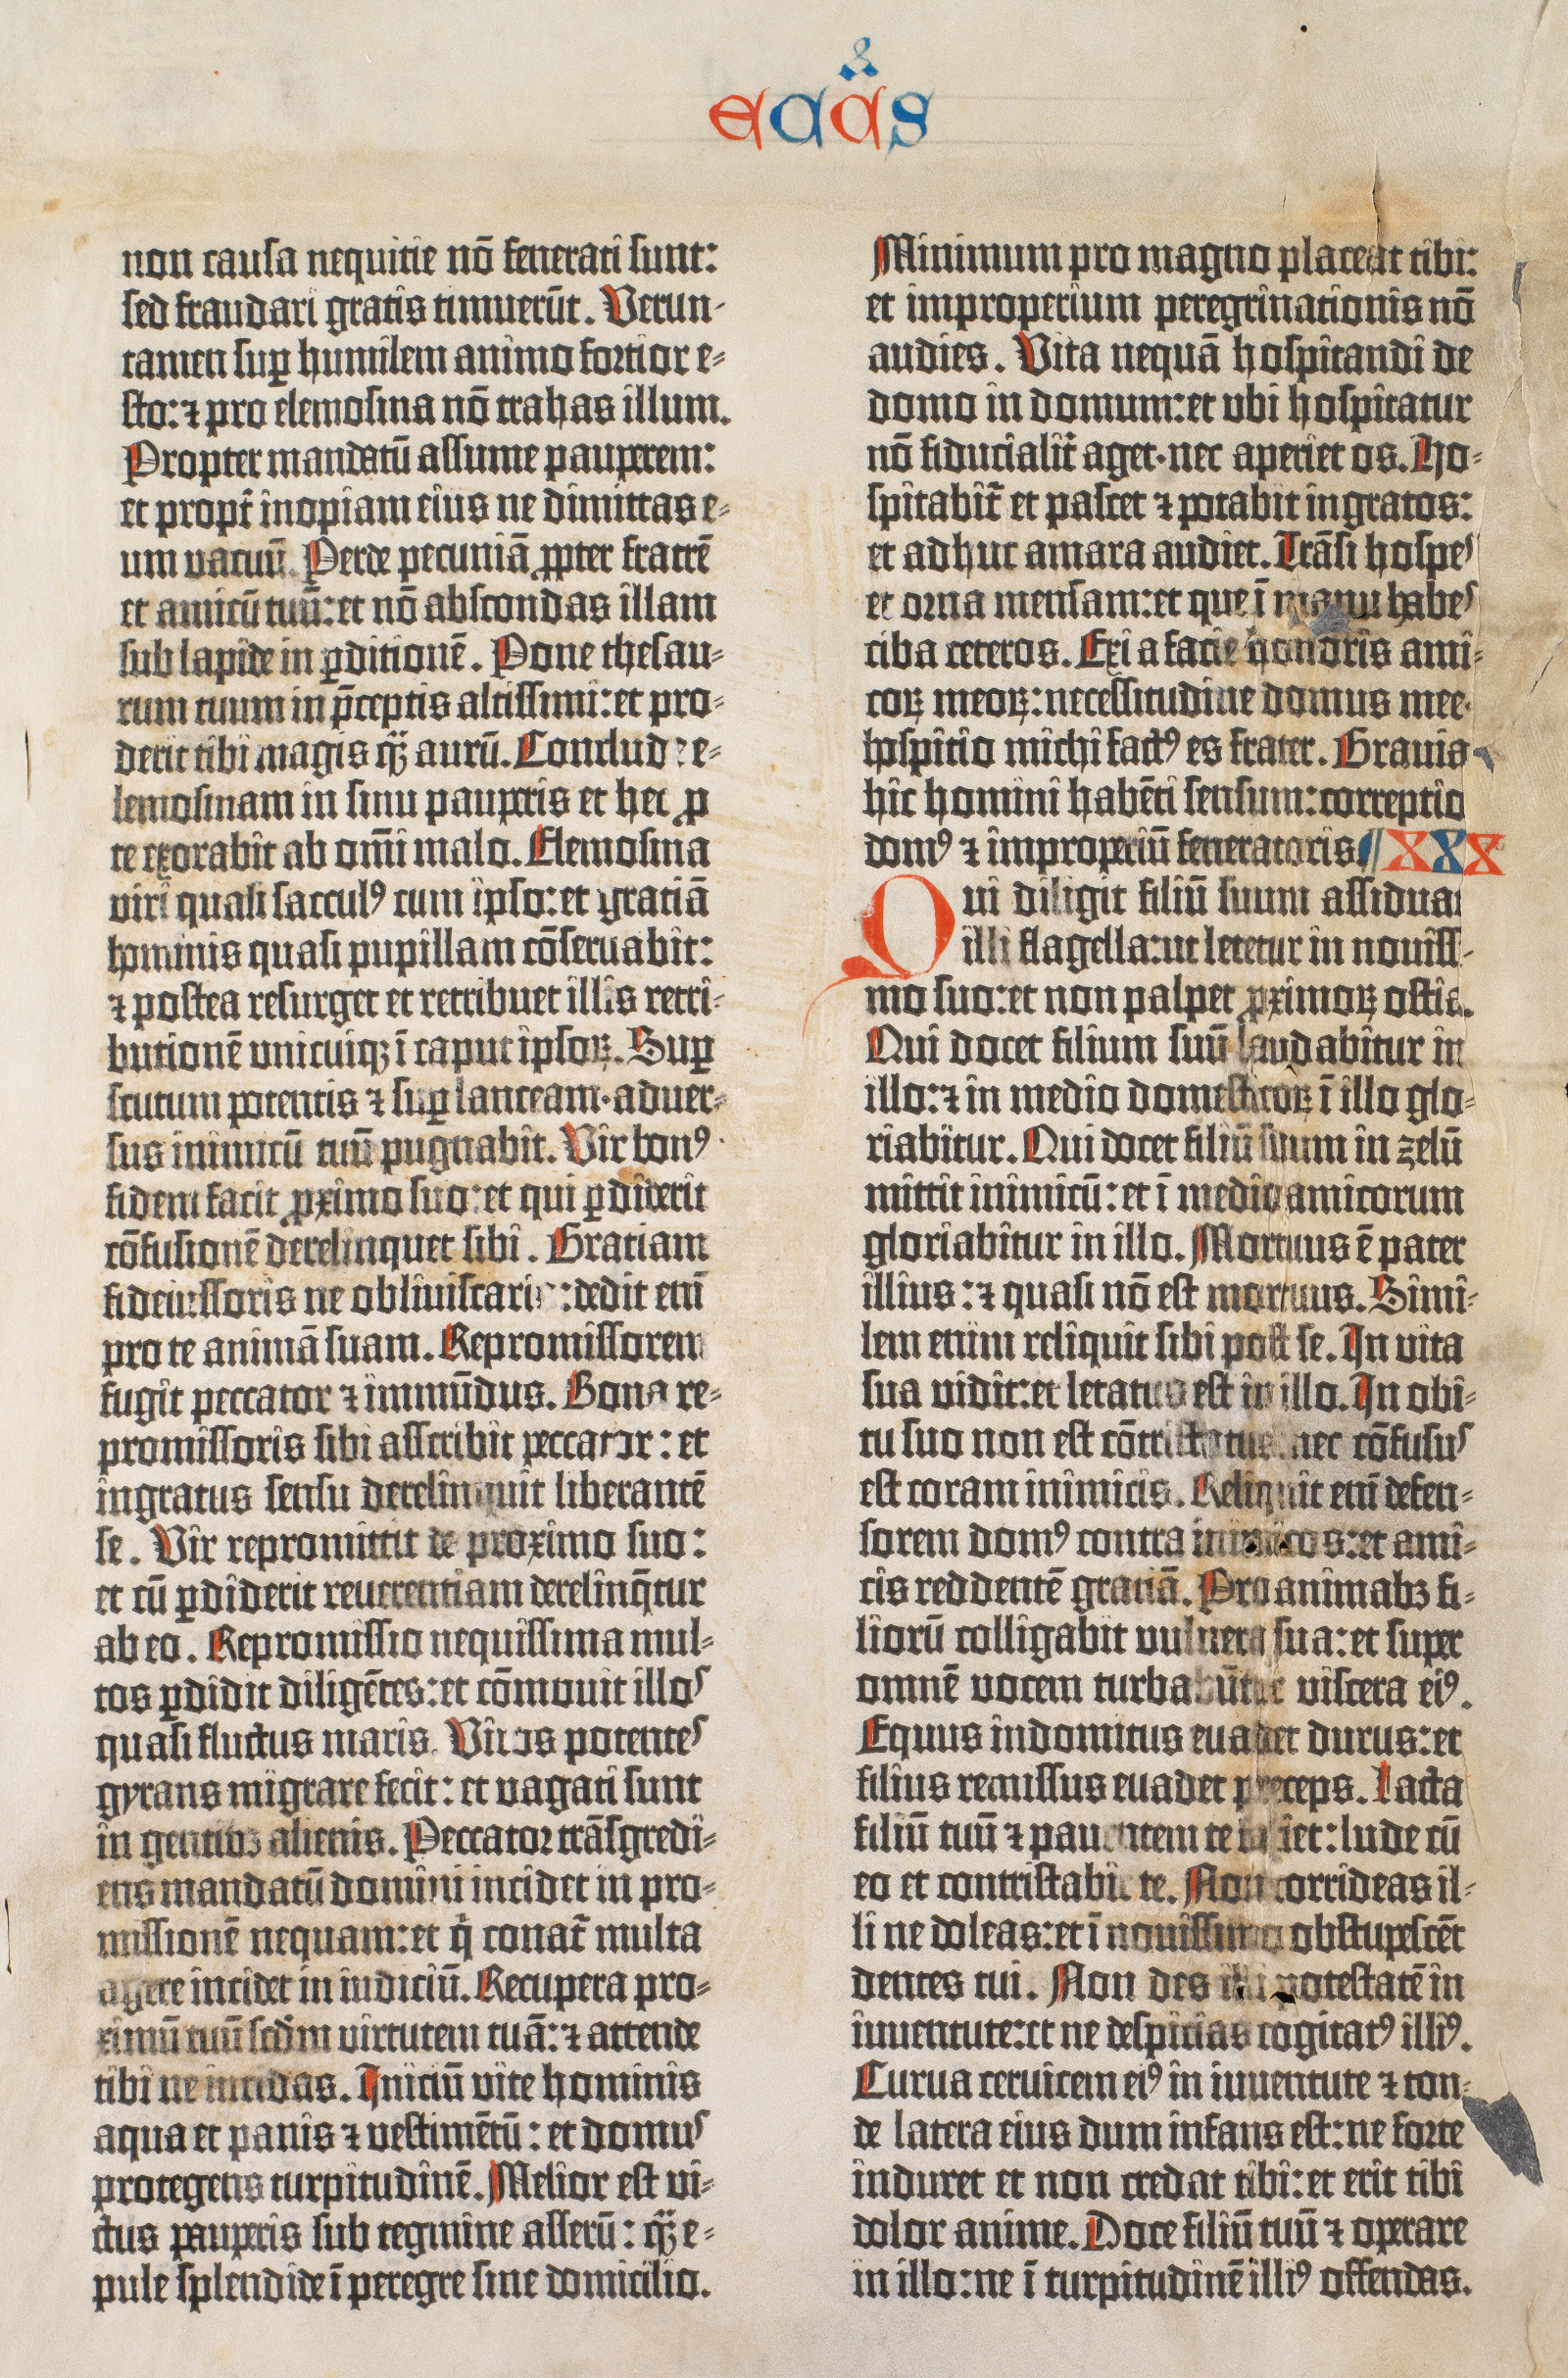 eccͣs
non causa nequitie nō fenerati sunt:
sed fraudari gratis timuerūt. Verun-
tamen suꝑ humilem animo fortior e-
sto: ⁊ pro elemosina nō trahas illum.
Propter mandatū assume pauperem:
et propt̄ inopiam eius ne dimittas e-
um vacuū. Perde pecuniā ꝓpter fratrē
et amicū tuū: et nō abscondas illam
sub lapide in ꝑditionē. Pone thesau-
rum tuum in p̄ceptis altissimi: et pro-
derit tibi magis qͣꝫ aurū. Conclude e-
lemosinam in sinu pauperis et hec ꝓ
te exorabit ab om̄i malo. Elemosina
viri quasi sacculꝰ cum ipso: et gratiā
hominis quasi pupillam cōservabit:
⁊ postea resurget et retribuet illis retri-
butionē unicuiqꝫ ī caput ipsoꝝ. Suꝑ
scutum potentis ⁊ suꝑ lanceam · adver-
sus inimicū tuū pugnabit. Vir bonꝰ
fidem facit ꝓximo suo: et qui ꝑdiderit
cōfusionē derelinquet sibi. Gratiam
fideiussoris ne obliviscaris: dedit eni̅
pro te animā suam. Repromissorem
fugit peccator ⁊ immūdus. Bona re-
promissoris sibi asscribit peccator: et
ingratus sensu derelinquit liberantē
se. Vir repromittit de proximo suo:
et cū ꝑdiderit reverentiam derelinq̄tur
ab eo. Repromissio nequissima mul-
tos ꝑdidit diligētes: et cōmovit illos
quasi fluctus maris. Viros potentes
gyrans migrare fecit: et vagati sunt
in gentibꝫ alienis. Peccator trāsgredi-
ens mandatū domini incidet in pro-
missionē nequam: et qͥ conat̄ multa
agere incidet in iudiciū. Recupera pro-
ximū tuū scd̄m virtutem tuā: ⁊ attende
tibi ne incidas. Iniciū vite hominis
aqua et panis ⁊ vestimētū: et domus
protegens turpitudinē. Melior est vi-
ctus pauperis sub tegmine asserū: qͣꝫ e-
pule splendide ī peregre sine domicilio.
Minimum pro magno placeat tibi:
et improperium peregrinationis nō
audies. Vita nequā hospitandi de
domo in domum: et ubi hospitatur
nō fiducialit̄ aget · nec aperiet os. Ho-
spitabit̄ et pascet ⁊ potabit ingratos:
et adhuc amara audiet. Trāsi hospes
et orna mensam: et que ī manu habes
ciba ceteros. Exi a facie honoris ami-
coꝝ meoꝝ: necessitudine domus mee
hospitio michi factꝰ es frater. Gravia
hic homini habēti sensum: correptio
domꝰ ⁊ improperiū feneratoris. XXX
Qui diligit filiū suum assiduat
illi flagella: ut letetur in novissi-
mo suo: et non palpet ꝓximoꝝ ostia.
Qui docet filium suū laudabitur in
illo: ⁊ in medio domesticoꝝ ī illo glo-
riabitur. Qui docet filiū suum in zelū
mittit inimicū: et ī medio amicorum
gloriabitur in illo. Mortuus ē pater
illius: ⁊ quasi nō est mortuus. Simi-
lem enim reliquit sibi post se. In vita
sua vidit: et letatus est in illo. In obi-
tu suo non est cōtristatus: nec cōfusus
est coram inimicis. Reliquit eni̅ defen-
sorem domꝰ contra inimicos: et ami-
cis reddentē gratiā. Pro animabꝫ fi-
liorū colligabit vulnera sua: et super
omnē vocem turbabūtur viscera eiꝰ.
Equus indomitus evadet durus: et
filius remissus evadet preceps. Lacta
filiū tuū ⁊ paventem te faciet: lude cū
eo et contristabit te. Non corrideas il-
li ne doleas: et ī novissimo obstupescēt
dentes tui. Non des illi potestatē in
iuventute: et ne despicias cogitatꝰ illiꝰ.
Curva cervicem eiꝰ in iuventute ⁊ ton-
de latera eius dum infans est: ne forte
induret et non credat tibi: et erit tibi
dolor anime. Doce filiū tuū ⁊ operare
in illo: ne ī turpitudinē illiꝰ offendas.